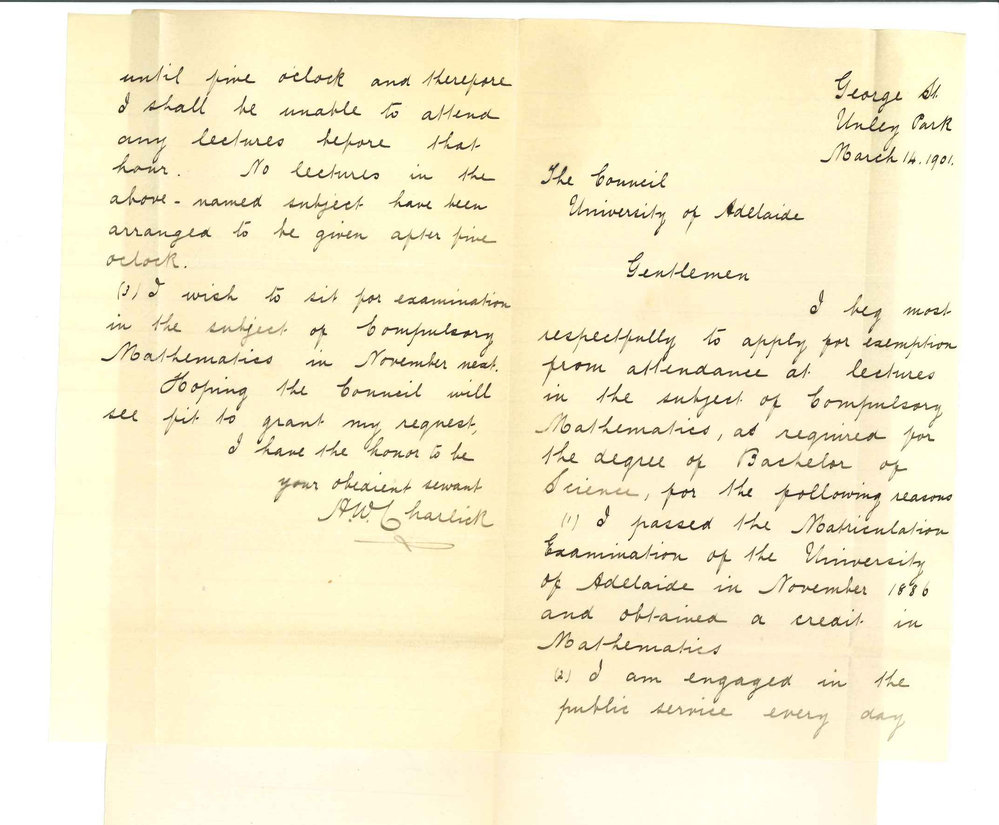 George St.
Unley Park
March 14. 1901.
The Council
University of Adelaide
Gentlemen
I beg most
respectfully to apply for exemption
from attendance at lectures
in the subject of Compulsory
Mathematics, as required for
the degree of Bachelor of
Science, for the following reasons
(1) I passed the Matriculation
Examination of the University
of Adelaide in November 1886
and obtained a credit in
Mathematics
(2) I am engaged in the
public service every day
until five o'clock and therefore
I shall be unable to attend
any lectures before that
hour. No lectures in the
above-named subject have been
arranged to be given after five
oclock.
(3) I wish to sit for examination
in the subject of Compulsory
Mathematics in November next.
Hoping the Council will
see fit to grant my request,
I have the honor to be
your obedient servant
A.W. Charlick